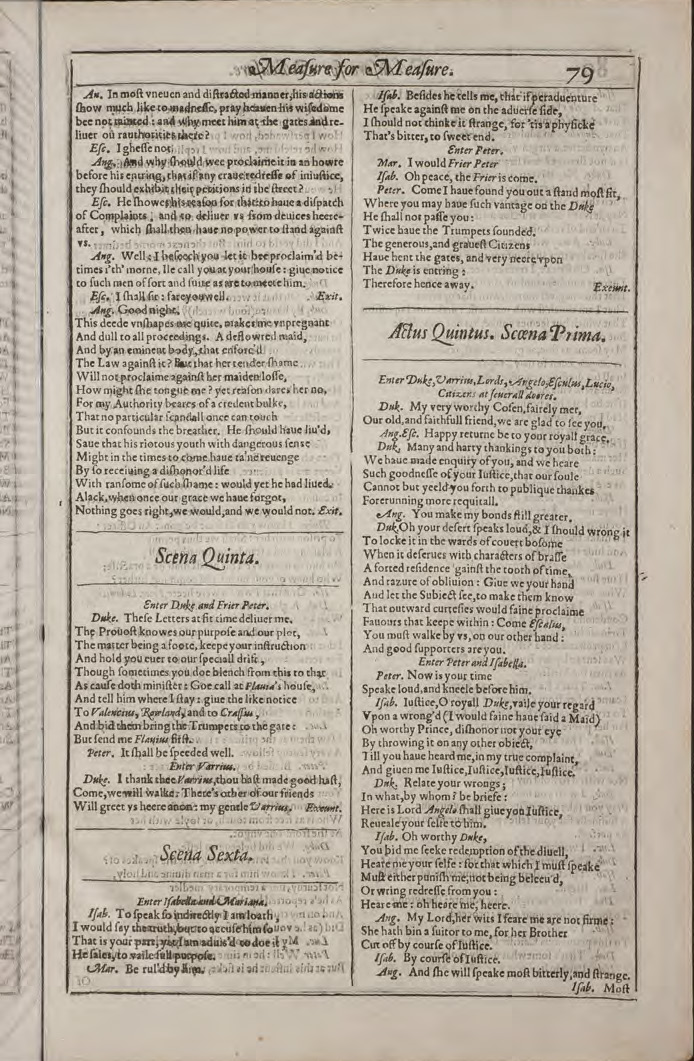 Meaſure for Meaſure.
79
An. In moſt vneuen and diſtracted manner, his actions
ſhow much like to madneſſe, pray heauen his wiſedome
bee not tainted: and why meet him at the gates and re-
liuer our authorities there?
Eſc. I gheſſe not.
Ang. And why ſhould wee proclaime it in an howre
before his entring, that if any craue redreſſe of iniuſtice,
they ſhould exhibit their petitions in the ſtreet?
Eſc. He ſhowes his reaſon for that: to haue a diſpatch
of Complaints, and to deliuer vs from deuices heere-
after, which ſhall then haue no power to ſtand againſt
vs.
Ang. Well: I beſeech you let it bee proclaim'd be-
times i'th' morne, Ile call you at your houſe: giue notice
to ſuch men of ſort and ſuite as are to meete him.
Eſc. I ſhall ſir: fareyouwell. Exit.
Ang. Good night.
This deede vnſhapes me quite, makes me vnpregnant
And dull to all proceedings. A deflowred maid,
And by an eminent body, that enforc'd
The Law againſt it? But that her tender ſhame
Will not proclaime againſt her maiden loſſe,
How might ſhe tongue me? yet reaſon dares her no,
For my Authority beares of a credent bulke,
That no particular ſcandall once can touch
But it confounds the breather. He ſhould haue liu'd,
Saue that his riotous youth with dangerous ſenſe
Might in the times to come haue ta'ne reuenge
By ſo receiuing a diſhonor'd life
With ranſome of ſuch ſhame: would yet he had liued.
Alack, when once our grace we haue forgot,
Nothing goes right, we would, and we would not. Exit.
Scena Quinta.
Enter Duke and Frier Peter.
Duke. Theſe Letters at fit time deliuer me,
The Prouoſt knowes our purpoſe and our plot,
The matter being a foote, keepe your inſtruction
And hold you euer to our ſpeciall drift,
Though ſometimes you doe blench from this to that
As cauſe doth miniſter: Goe call at Flauia's houſe,
And tell him where I ſtay: giue the like notice
To Valencius, Rowland, and to Craſſus,
And bid them bring the Trumpets to the gate:
But ſend me Flauius firſt.
Peter. It ſhall be ſpeeded well.
Enter Varrius.
Duke. I thank thee Varrius, thou haſt made good haſt,
Come, we will walke: There's other of our friends
Will greet vs heere anon: my gentle Varrius. Exeunt.
Scena Sexta.
Enter Iſabella and Mariana.
Iſab. To ſpeak ſo indirectly I am loath,
I would ſay the truth, but to accuſe him ſo
That is your part, yet I am aduis'd to doe it,
He ſaies, to vaile full purpoſe.
Mar. Be rul'd by him.
Iſab. Beſides he tells me, that if peraduenture
He ſpeake againſt me on the aduerſe ſide,
I ſhould not thinke it ſtrange, for 'tis a phyſicke
That's bitter, to ſweet end.
Enter Peter.
Mar. I would Frier Peter
Iſab. Oh peace, the Frier is come.
Peter. Come I haue found you out a ſtand moſt fit,
Where you may haue ſuch vantage on the Duke
He ſhall not paſſe you:
Twice haue the Trumpets ſounded.
The generous, and graueſt Citizens
Haue hent the gates, and very neere vpon
The Duke is entring:
Therefore hence away. Exeunt.
Actus Quintus. Scœna Prima.
Enter Duke, Varrius, Lords, Angelo, Eſculus, Lucio,
Citizens at ſeuerall doores.
Duk. My very worthy Coſen, fairely met,
Our old, and faithfull friend, we are glad to ſee you.
Ang. Eſc. Happy returne be to your royall grace.
Duk. Many and harty thankings to you both:
We haue made enquiry of you, and we heare
Such goodneſſe of your Iuſtice, that our ſoule
Cannot but yeeld you forth to publique thankes
Forerunning more requitall.
Ang. You make my bonds ſtill greater.
Duk. Oh your deſert ſpeaks loud, & I ſhould wrong it
To locke it in the wards of couert boſome
When it deſerues with characters of braſſe
A forted reſidence 'gainſt the tooth of time,
And razure of obliuion: Giue we your hand
And let the Subiect ſee, to make them know
That outward curteſies would faine proclaime
Fauours that keepe within: Come Eſcalus,
You muſt walke by vs, on our other hand:
And good ſupporters are you.
Enter Peter and Iſabella.
Peter. Now is your time
Speake loud, and kneele before him.
Iſab. Iuſtice, O royall Duke, vaile your regard
Vpon a wrong'd (I would faine haue ſaid a Maid)
Oh worthy Prince, diſhonor not your eye
By throwing it on any other obiect,
Till you haue heard me, in my true complaint,
And giuen me Iuſtice, Iuſtice, Iuſtice, Iuſtice.
Duk. Relate your wrongs;
In what, by whom? be briefe:
Here is Lord Angelo ſhall giue you Iuſtice,
Reueale your ſelfe to him.
Iſab. Oh worthy Duke,
You bid me ſeeke redemption of the diuell,
Heare me your ſelfe: for that which I muſt ſpeake
Muſt either puniſh me, not being beleeu'd,
Or wring redreſſe from you:
Heare me: oh heare me, heere.
Ang. My Lord, her wits I feare me are not firme:
She hath bin a ſuitor to me, for her Brother
Cut off by courſe of Iuſtice.
Iſab. By courſe of Iuſtice.
Ang. And ſhe will ſpeake moſt bitterly, and ſtrange.
Iſab. Moſt